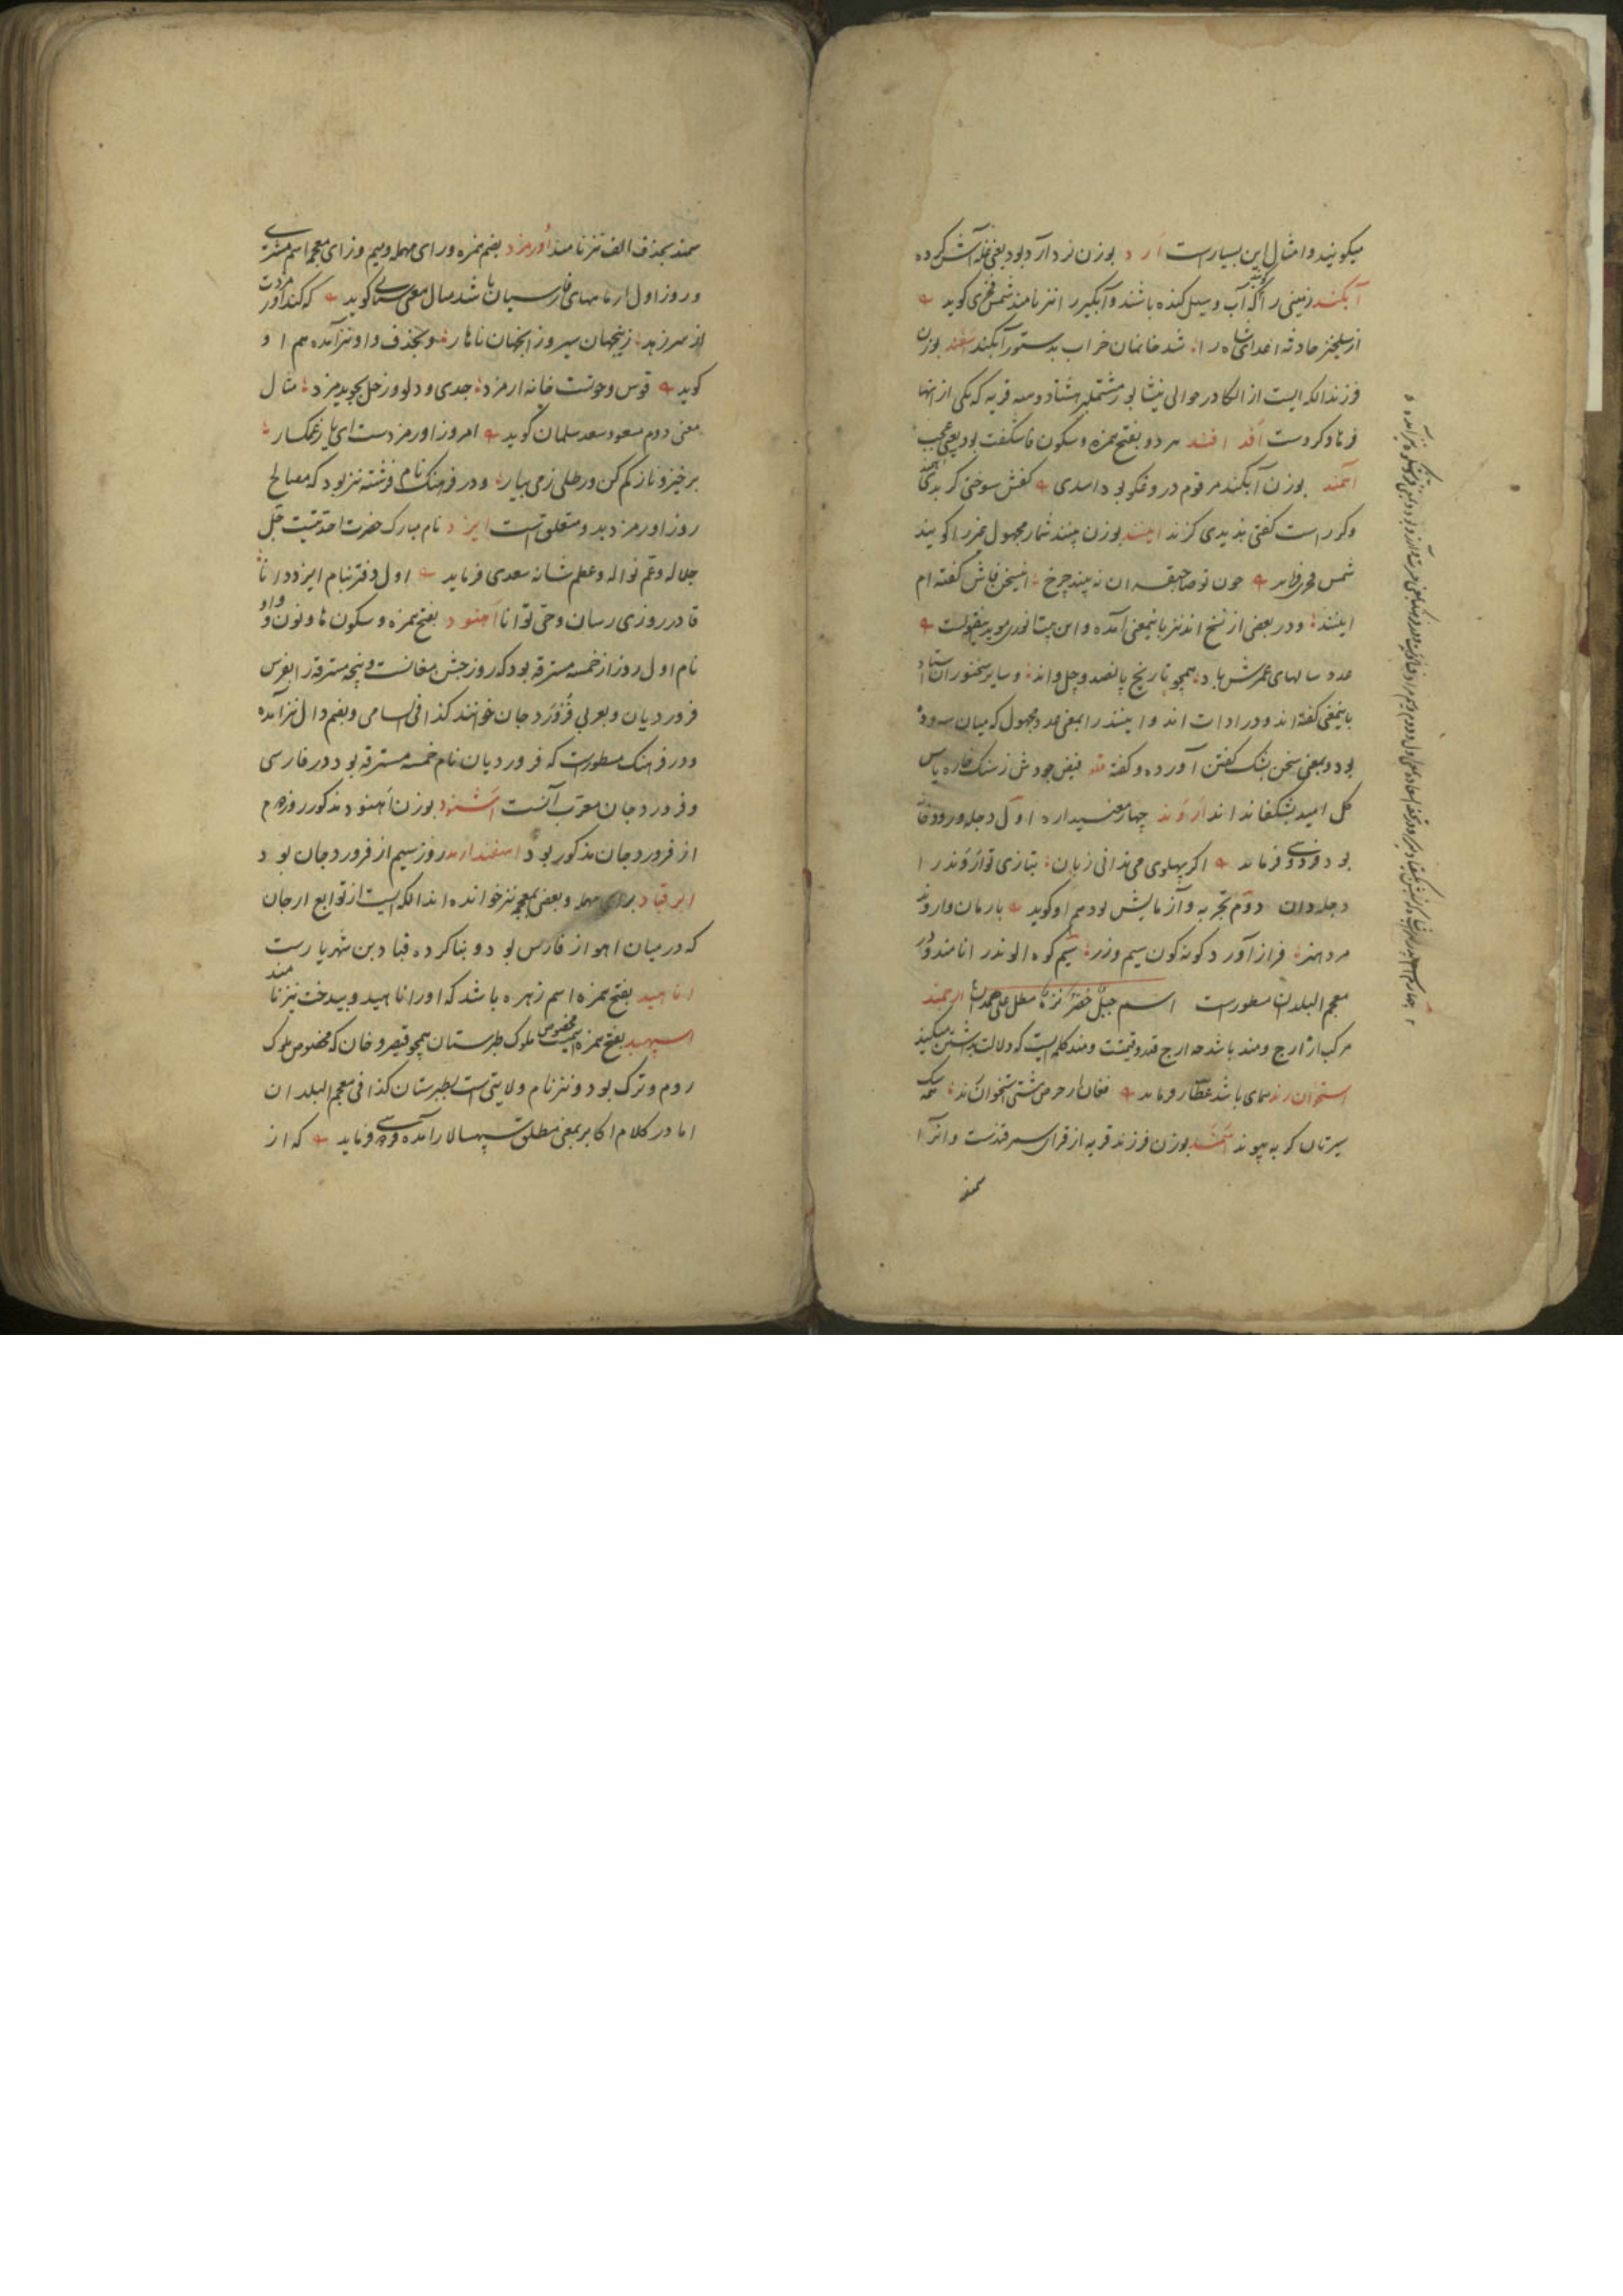 میکویند و امثال این بسیارست آرد بوزن نرد آرد بود یعنی غله آش کرده
آبکند زمینی را کویند که آب و سیل کنده باشند و آبکیر را نیز نامند شمس فخری کوید
از سیلخیز حادثه اعدای شاه را شد خانمان خراب بدستور آبکند اسفند بوزن
فرزند الکه ایست از الکا در حوالی نیشابور مشتملبر هشتاد و سه قریه که یکی از انها
فرنادکردست افد افشد هر دو بفتح همزه و سکون فا شکفت بود یعنی عجب
آهمند بوزن آبکند مرقوم دروغکو بود اسدی کفتش سوختی کر بدی آهمند
وکر راست کفتی بدیدی کزند ایسند بوزن پسند شمار مجهول را کویند
شمس فخری فرماید چون تو صاحبقران نه بیند چرخ این سخن فاش کفته ام
ایسند و در بعضی از نسخ اند نیز باینمعنی آمده و این بیت انوری موید این قولست
عدد سالهای عمرش باد همچو تاریخ پانصد و چل و اند و سایر سخنوران استاد
باینمعنی کفته اند و در ادات اند و ایسند را بمعنی عدد مجهول که میان سه و ده
بود و بمعنی سخن بشک کفتن آورده و کفته فیض جودش ز سنک خاره یاس
کل امید بشکفاند اند اروند چهار معنی دارد اول دجله و رودخانه
بود فردوسی فرماید اکر پهلوی می ندانی زبان بتازی تو اروند را
دجله دان دوم تجربه و آزمایش بود هم او کوید بارمان و اروند
مرد هنر فراز آورد کونه کون سیم و زر سیم کوه الوند را نامند و در
معجم البلدان مسطورست اسم جبل خضر نزه مطل علی همدان ارجمند
مرکب از ارج و مند باشد چه ارج قدر و قیمتست و مند کلمه ایست که دلالت بر داشتن میکند
استخوان رند همای باشد عطار فرماید فغان از حرص مشتی استخوان رند همه سک
سیرتان کربه پیوند اسمند بوزن فرزند قریه از قرای سمرقندست و انرا
سمند
سمند بحذف الف نیز نامند اورمزد بضم همزه و رای مهمله و میم و زای معجم اسم مشتری
و روز اول از ماههای فارسیان باشد مثال معنی سنای کوید که کند اورمزدت
از سر زهد زینجهان سیر و زانجهان ناهار و بحذف واو نیز آمده هم او
کوید قوس و حوتست خانه ارمزد جدی و دلو و زحل بجوید مزد مثال
معنی دوم مسعود سعد سلمان کوید امروز اورمزدست ای یار غمکسار
برخیز و ناز کم کن و رطلی ز می بیار و در فرهنک نام فرشته نیز بود که مصالح
روز اورمزد بدو متعلق است ایزد نام مبارک حضرت احدیتست جل
جلاله و عم نواله و عظم شانه سعدی فرماید اول دفتر بنام ایزد دانا
قادر روزی رسان و حی توانا آهنود بفتح همزه و سکون ها و نون و واو
نام اول روز از خمسه مسترقه بود که روز جشن مغانست و پنجه مسترقه را بفرس
فروردیان و بعربی فروردجان خوانند کذا فی السامی و بضم دال نیز آمده
و در فرهنک مسطورست که فروردیان نام خمسه مسترقه بود در فارسی
و فروردجان معرب آنست اشنود بوزن اهنود مذکور روز دوم
از فروردجان مذکور بود اسفندارمد روز سیم از فروردجان بود
ابرقباد برای مهمله و بعضی بمعجم نیز خوانده اند الکه ایست از توابع ارجان
که در میان اهواز و فارس بود و بنا کرده قباد بن شهریارست
اناهید بفتح همزه اسم زهره باشد که اورا ناهید و بیدخت نیز نامند
اسپهبد بفتح همزه اسمیست مخصوص ملوک طبرستان همچو قیصر و خان که مخصوص ملوک
روم و ترک بود و نیز نام ولایتی است بطبرستان کذا فی معجم البلدان
اما در کلام اکابر بمعنی مطلق سپهسالار آمده فردوسی فرماید که از